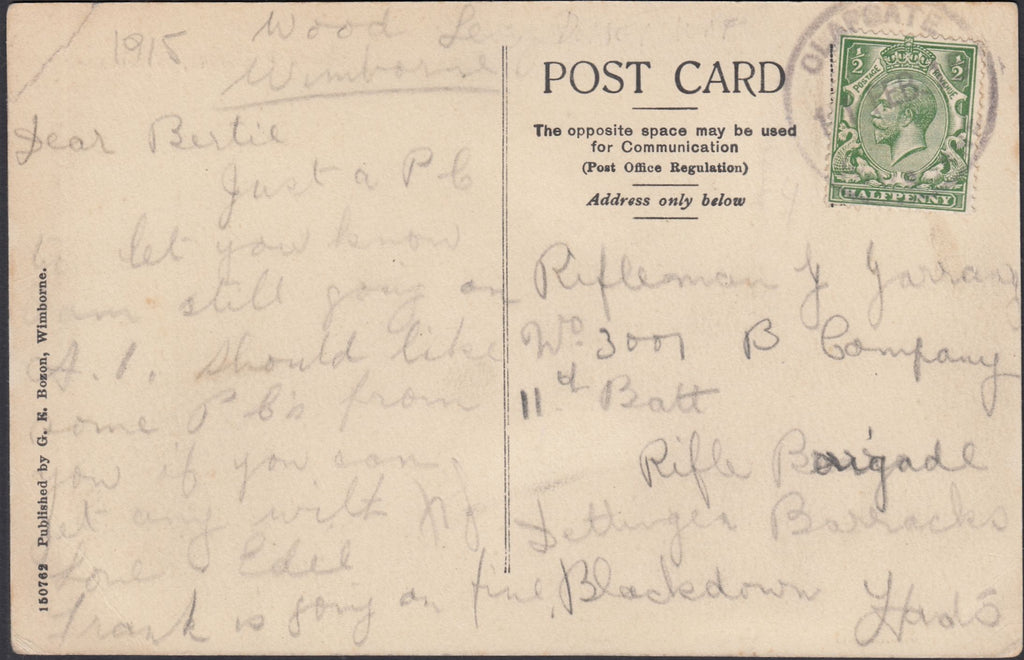 1915
Wood
Wimborne
Dear Bertie
Just a P C
to let you know
am still going on
A. 1. should like
some P C's from
you if you can
get any with
Love Edel
Frank is going on fine.
150762 Published by G. E. Bozon, Wimborne.
POST CARD
The opposite space may be used
for Communication
(Post Office Regulation)
Address only below
½ ½
POSTAGE REVENUE
HALFPENNY
GATE
Rifleman J Garran
No. 3001 B Company
11th Batt
Rifle Barigade
Dettingen Barracks
Blackdown